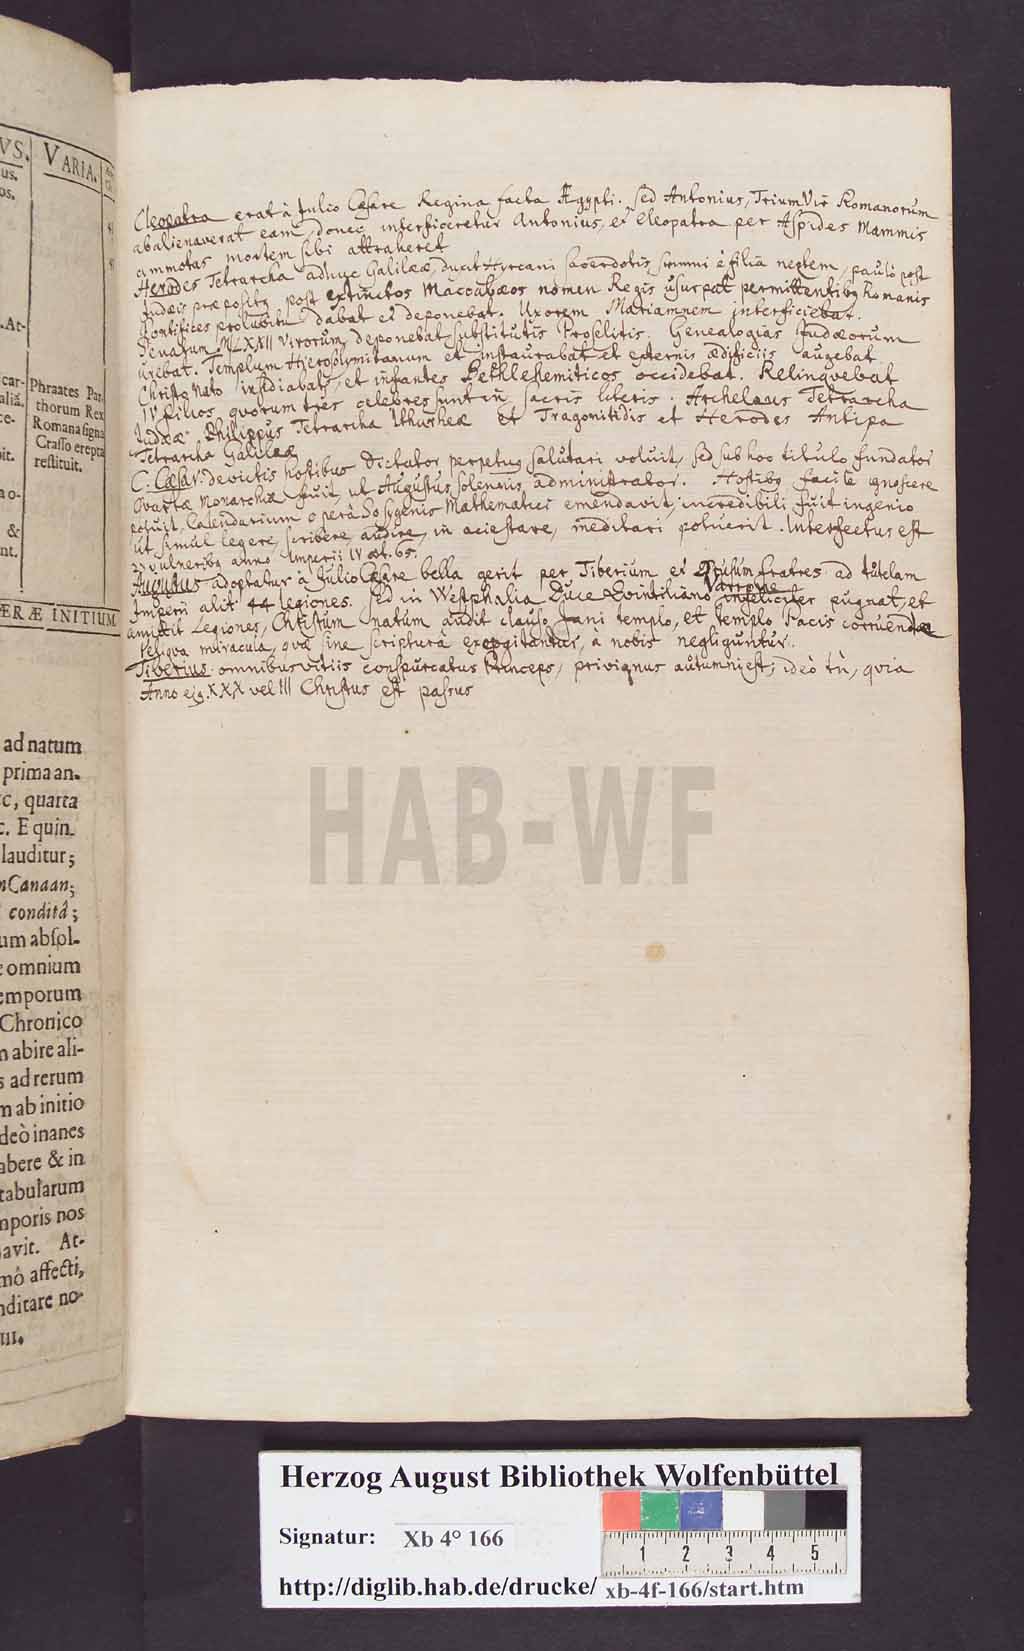 VS.
VARIA.
us.
os.
.At-
car-
aliâ.
ce-
pit.
no-
&
nt.
Phraates Par-
thorum Rex
Romana signa
Crasso erepta
restituit.
ÆRÆ INITIUM
ad natum
prima an-
c, quarta
c. E quin-
lauditur;
nCanaan;
conditâ;
um absol-
omnium
emporum
Chronico
n abire ali-
s ad rerum
m ab initio
deò inanes
abere & in
tabularum
mporis nos
avit. At-
mô affecti,
nditare no-
III.
Cleopatra erat à Julio Cæsare Regina facta Ægypti. Sed Antonius, TriumVir Romanorum
abalienaverat eam, donec interficeretur Antonius, et Cleopatra per Aspides Mammis
ammotas mortem sibi attraheret
Herodes Tetrarcha adhuc Galilææ, ducit Hyrcani sacerdotis summi è filia neptem, paulò post
Judæis præpositq post extinctos Maccabæos nomen Regis usurpat permittentibq Romanis
Pontifices prolubitu dabat et deponebat. Uxorem Mariamnem interficiebat.
Senatum LXXII Virorum deponebat substitutis Proselitis. Genealogias Judæorum
urebat. Templum Hierosolymitanum et instaurabat et externis ædificiis augebat.
Christo nato insidiabatr, et infantes Bethlehemiticos occidebat. Relinqvebat
IV filios qvorum tres celebres sunt in sacris literis. Archelaus Tetrarcha
Judææ. Philippus Tetrarcha Ithureæ et Tragonitidis et Herodes Antipa
Tetrarcha Galilææ
C. Cæsar. devictis hostibus Dictator perpetuq salutari voluit, sed sub hoc titulo fundator
Qvartæ Monarchiæ fuit, ut Augustus solennis administrator. Hostibq facile ignoscere
voluit. Calendarium operâ Sosygenis Mathematici emendavit, incredibili fuit ingenio
ut simul legere, scribere, audire, in acie stare, meditari potuerit. Interfectus est
23 vulneribq anno Imperii IV æt. 65.
Augustus adoptatur à Julio Cæsare bella gerit per Tiberium et Drusum fratres ad tutelam
Imperii alit 44 legiones. Sed in Westphalia Duce Qvintiliano Varrone infeliciter pugnat, et
amittit Legiones, Christum natum audit clauso Jani templo, et templo Pacis corruende
reliqva miracula, qvæ sine scripturâ excogitantur, à nobis negliguntur.
Tiberius omnibus vitiis conspurcatus Princeps, privignus autumni est, ideò tn, qvia
Anno ejq XXX vel III Christus est passus
HAB-WF
Herzog August Bibliothek Wolfenbüttel
Signatur: Xb 4° 166
1 2 3 4 5
http://diglib.hab.de/drucke/ xb-4f-166/start.htm